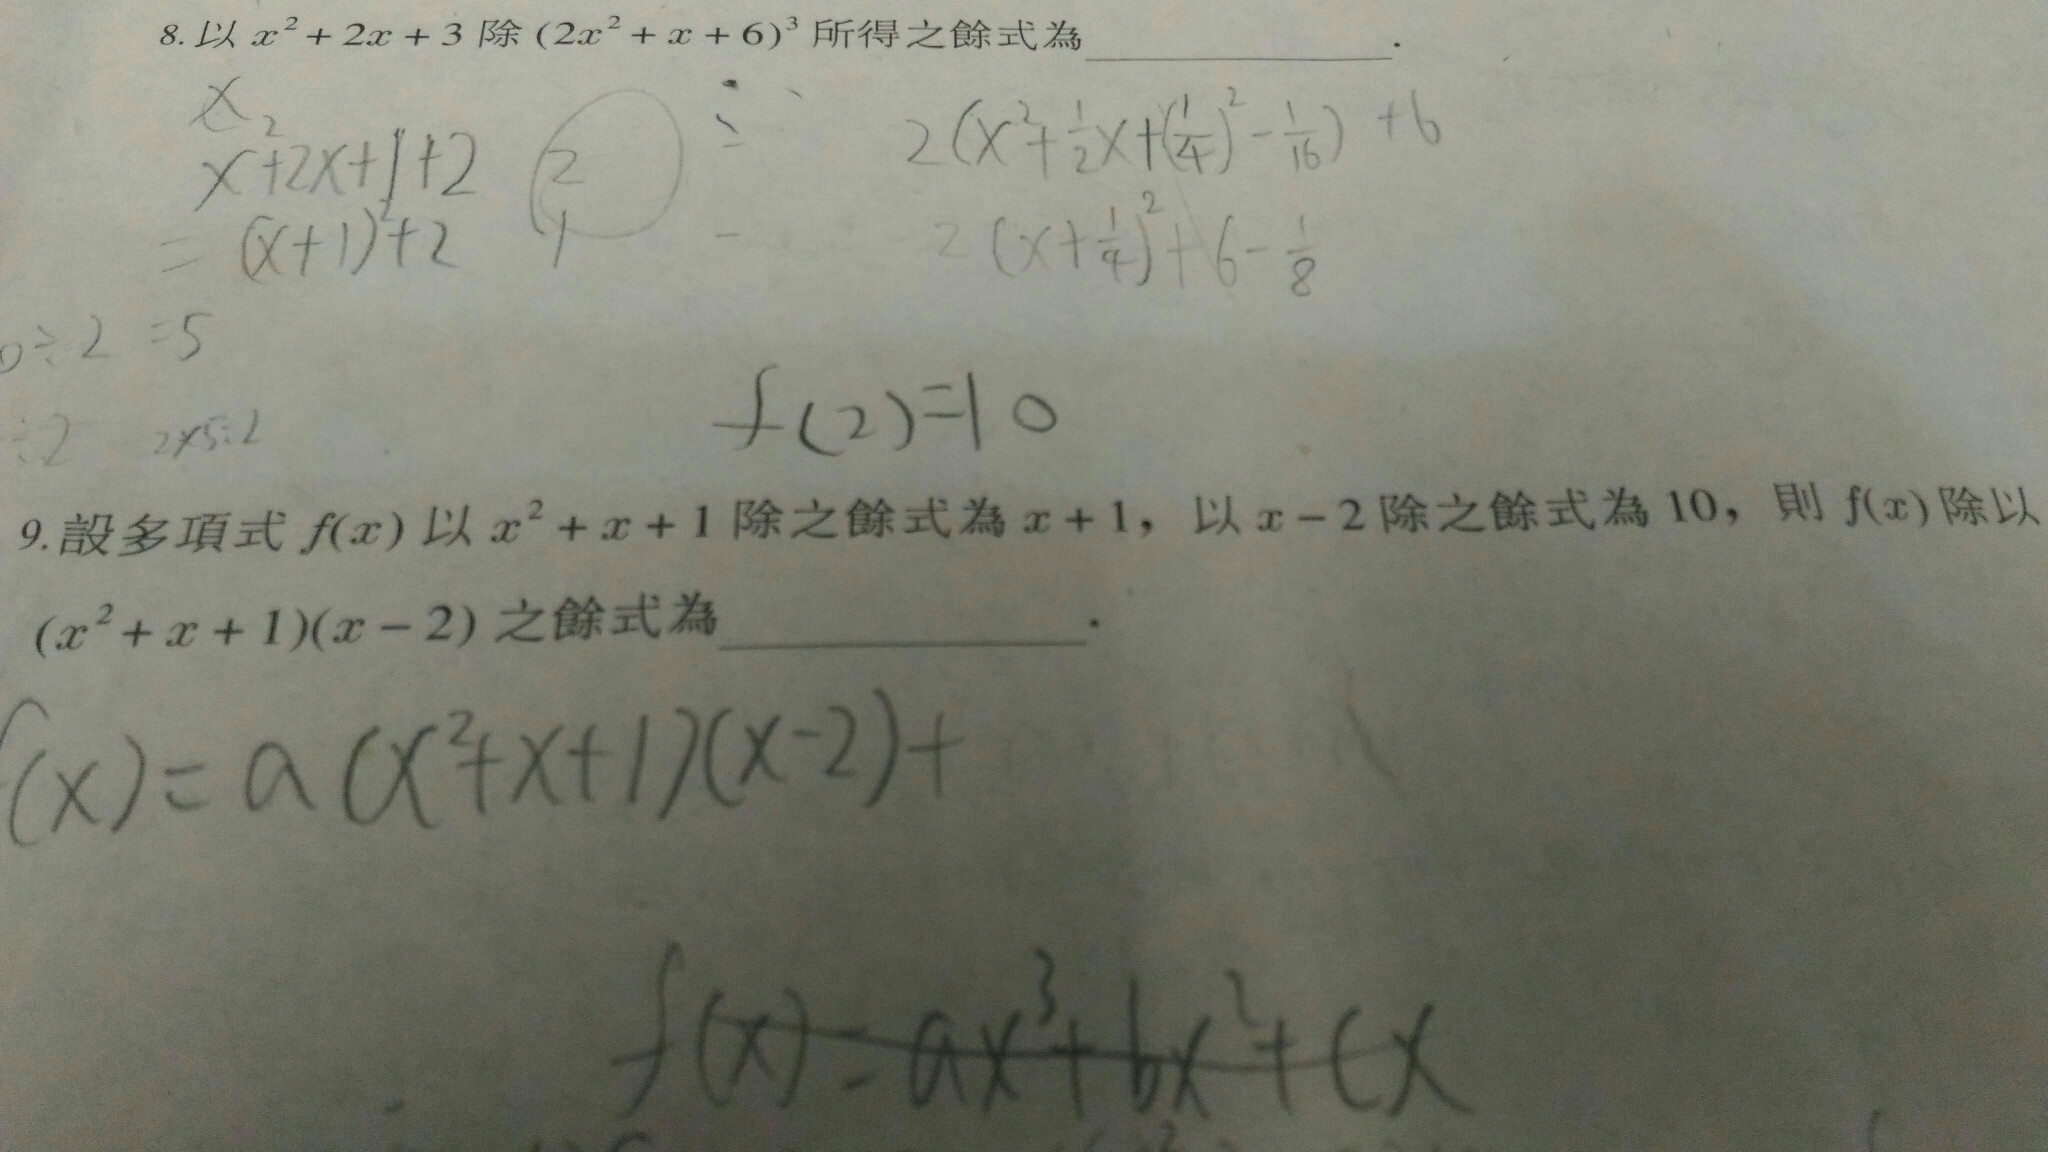 8. 以 x² + 2x + 3 除 (2x² + x + 6)³ 所得之餘式為__________.
x² + 2x + 1 + 2
2
2(x² + 1/2 x + (1/4)² - 1/16) + 6
= (x+1)² + 2
1
2(x + 1/4)² + 6 - 1/8
÷ 2 = 5
÷2 2×5÷2
f(2) = 10
9. 設多項式 f(x) 以 x² + x + 1 除之餘式為 x + 1，以 x − 2 除之餘式為 10，則 f(x) 除以
(x² + x + 1)(x − 2) 之餘式為__________.
f(x) = a(x² + x + 1)(x - 2) +
f(x) = ax³ + bx² + cx